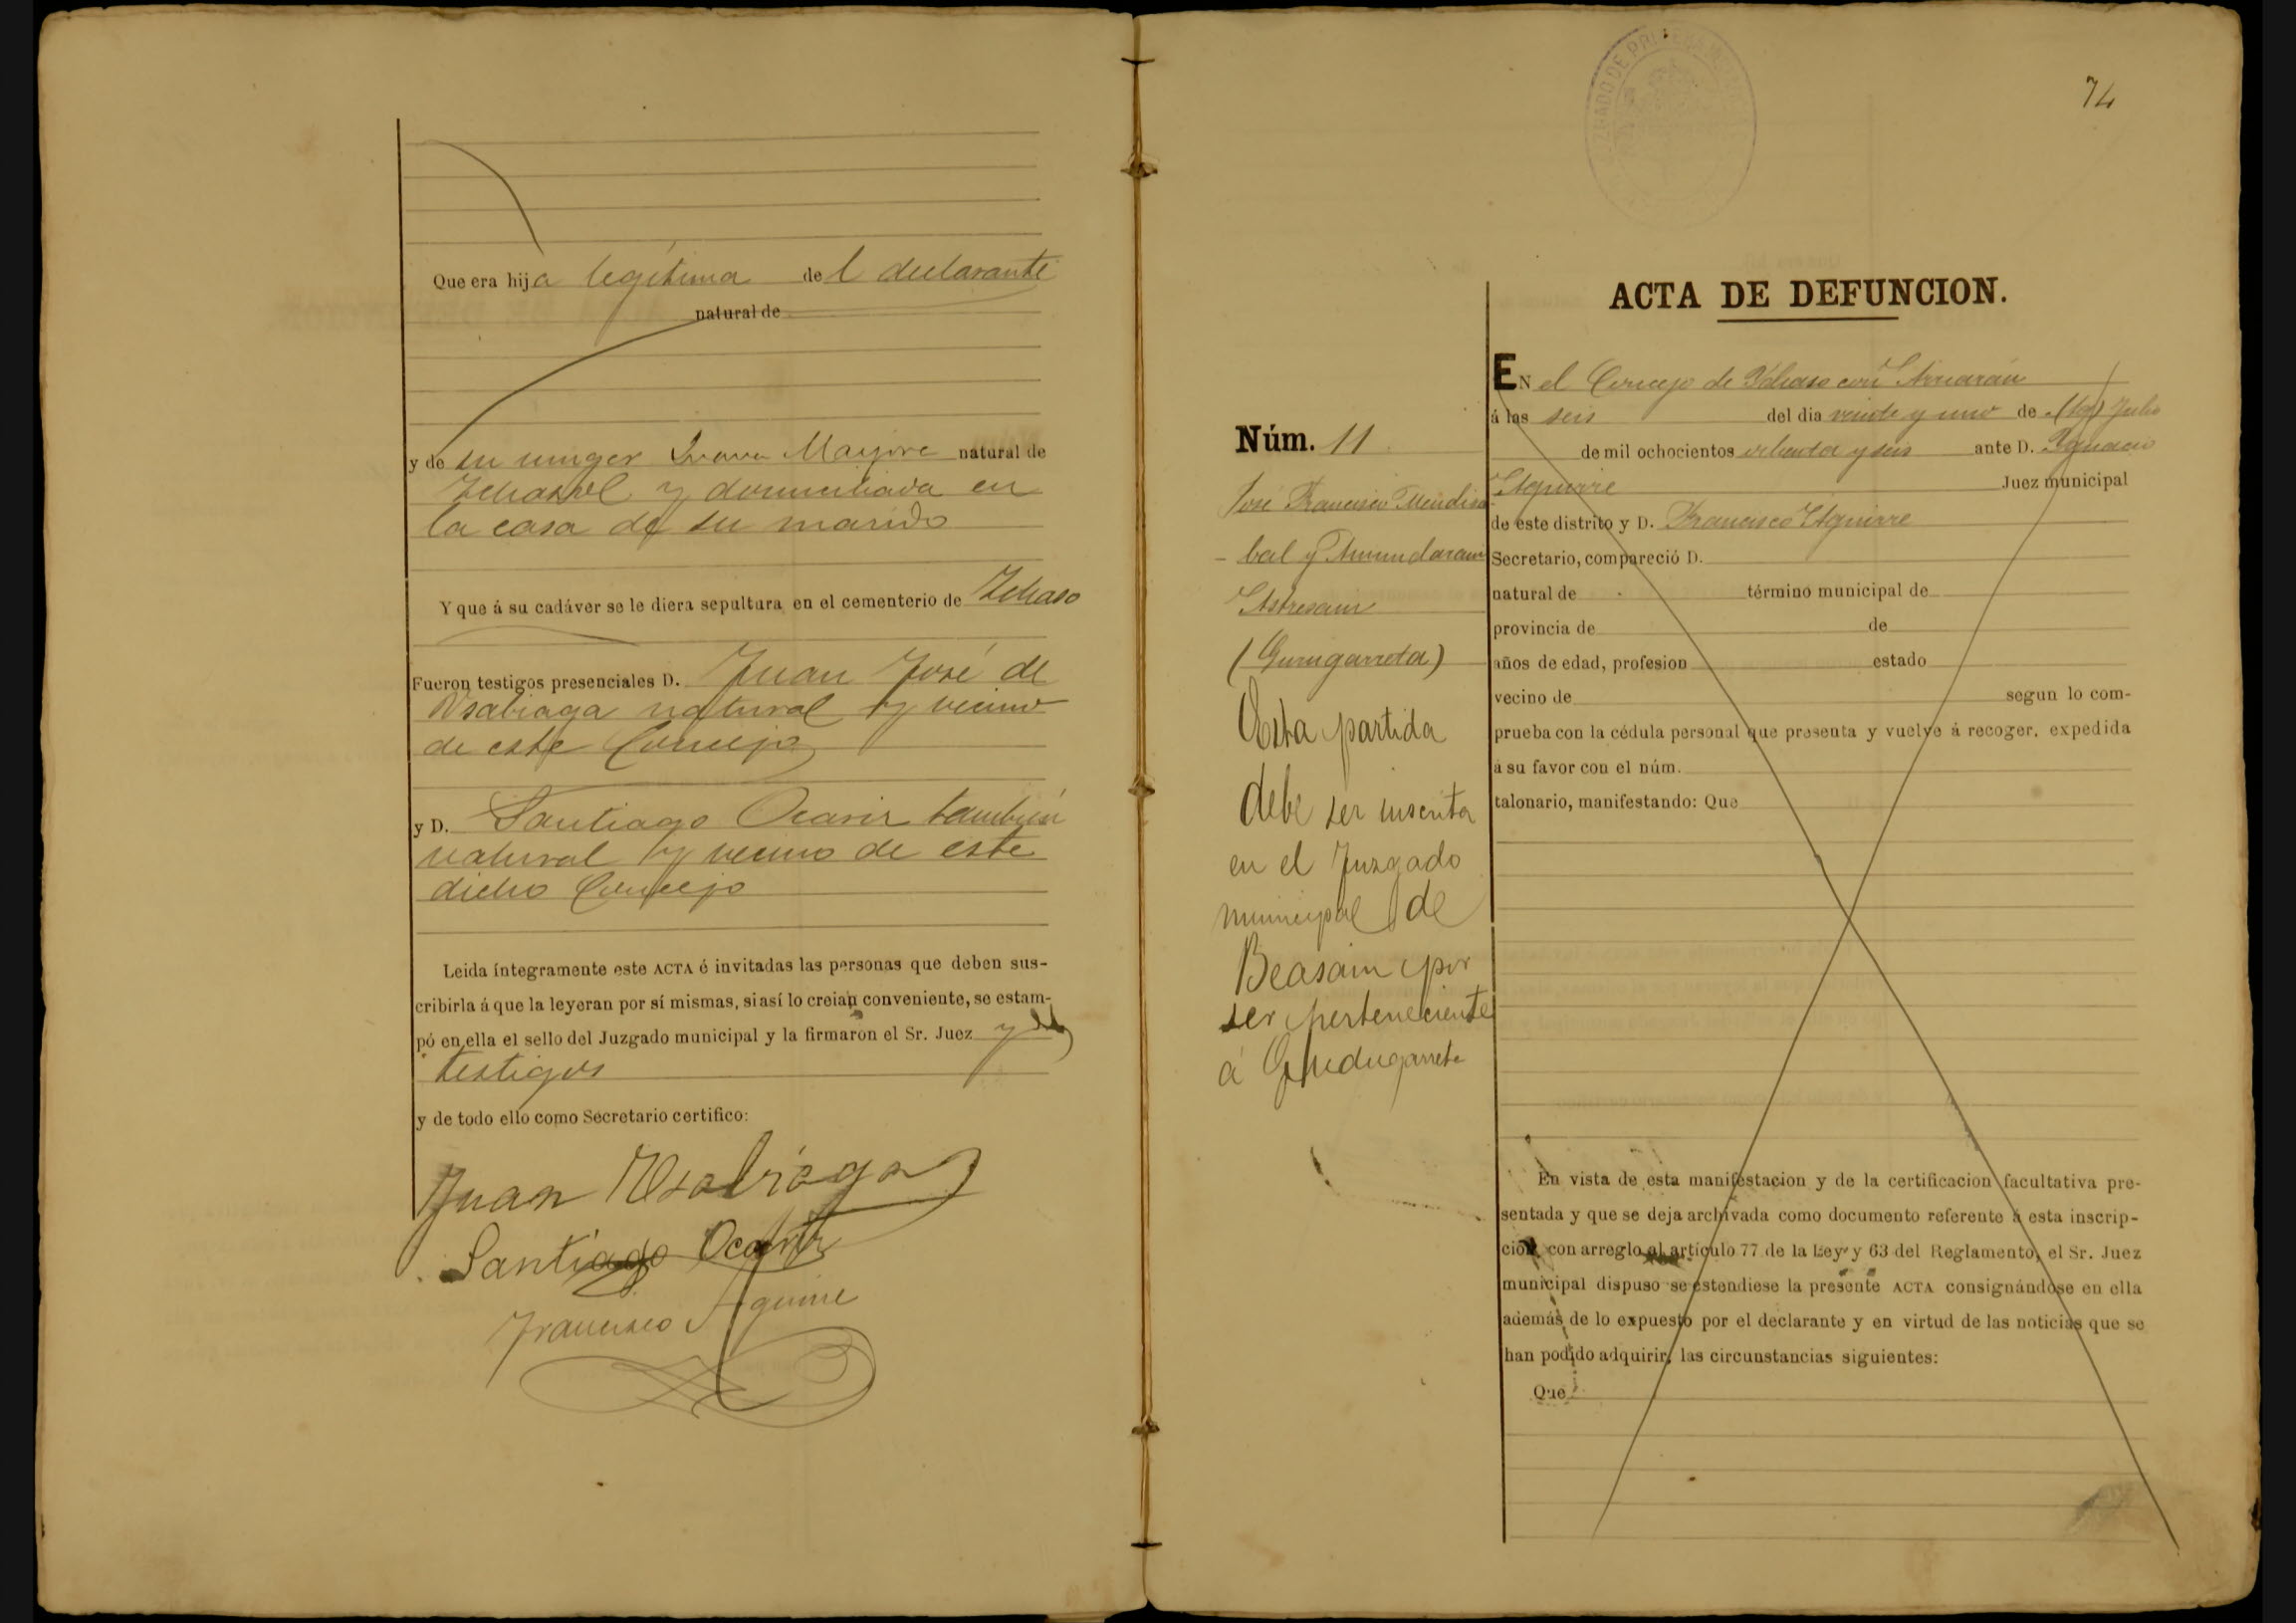 Que era hija legítima del declarante
natural de
y de su muger Juana Mayora natural de
Ichaso el y domiciliada en
la casa de su marido
Y que á su cadáver se le diera sepultura en el cementerio de Ichaso
Fueron testigos presenciales D. Juan José de
Usabiaga natural y vecino
de este Concejo
y D. Santiago Ocariz también
natural y vecino de este
dicho Concejo
Leida íntegramente este ACTA é invitadas las personas que deben sus-
cribirla á que la leyeran por sí mismas, si así lo creian conveniente, se estam-
pó en ella el sello del Juzgado municipal y la firmaron el Sr. Juez y
testigos
y de todo ello como Secretario certifico:
Juan Usabiaga
Santiago Ocariz
Francisco Aguirre
74
ACTA DE DEFUNCION.
Núm. 11
José Francisco Mendiza
-bal y Amundarain
(Gurugarreta)
Esta partida
debe ser inscrita
en el Juzgado
municipal de
Beasain por
ser perteneciente
á Gudugarreta
EN el Concejo de Ichaso con Arriarán
á las seis del dia veinte y uno de Julio
de mil ochocientos ochenta y seis ante D. Ignacio
Aguirre Juez municipal
de este distrito y D. Francisco Aguirre
Secretario, compareció D.
natural de término municipal de
provincia de de
años de edad, profesion estado
vecino de segun lo com-
prueba con la cédula personal que presenta y vuelve á recoger, expedida
á su favor con el núm.
talonario, manifestando: Que
En vista de esta manifestacion y de la certificacion facultativa pre-
sentada y que se deja archivada como documento referente á esta inscrip-
cion con arreglo al artículo 77 de la Ley y 63 del Reglamento, el Sr. Juez
municipal dispuso se estendiese la presente ACTA consignándose en ella
además de lo expuesto por el declarante y en virtud de las noticias que se
han podido adquirir, las circunstancias siguientes:
Que